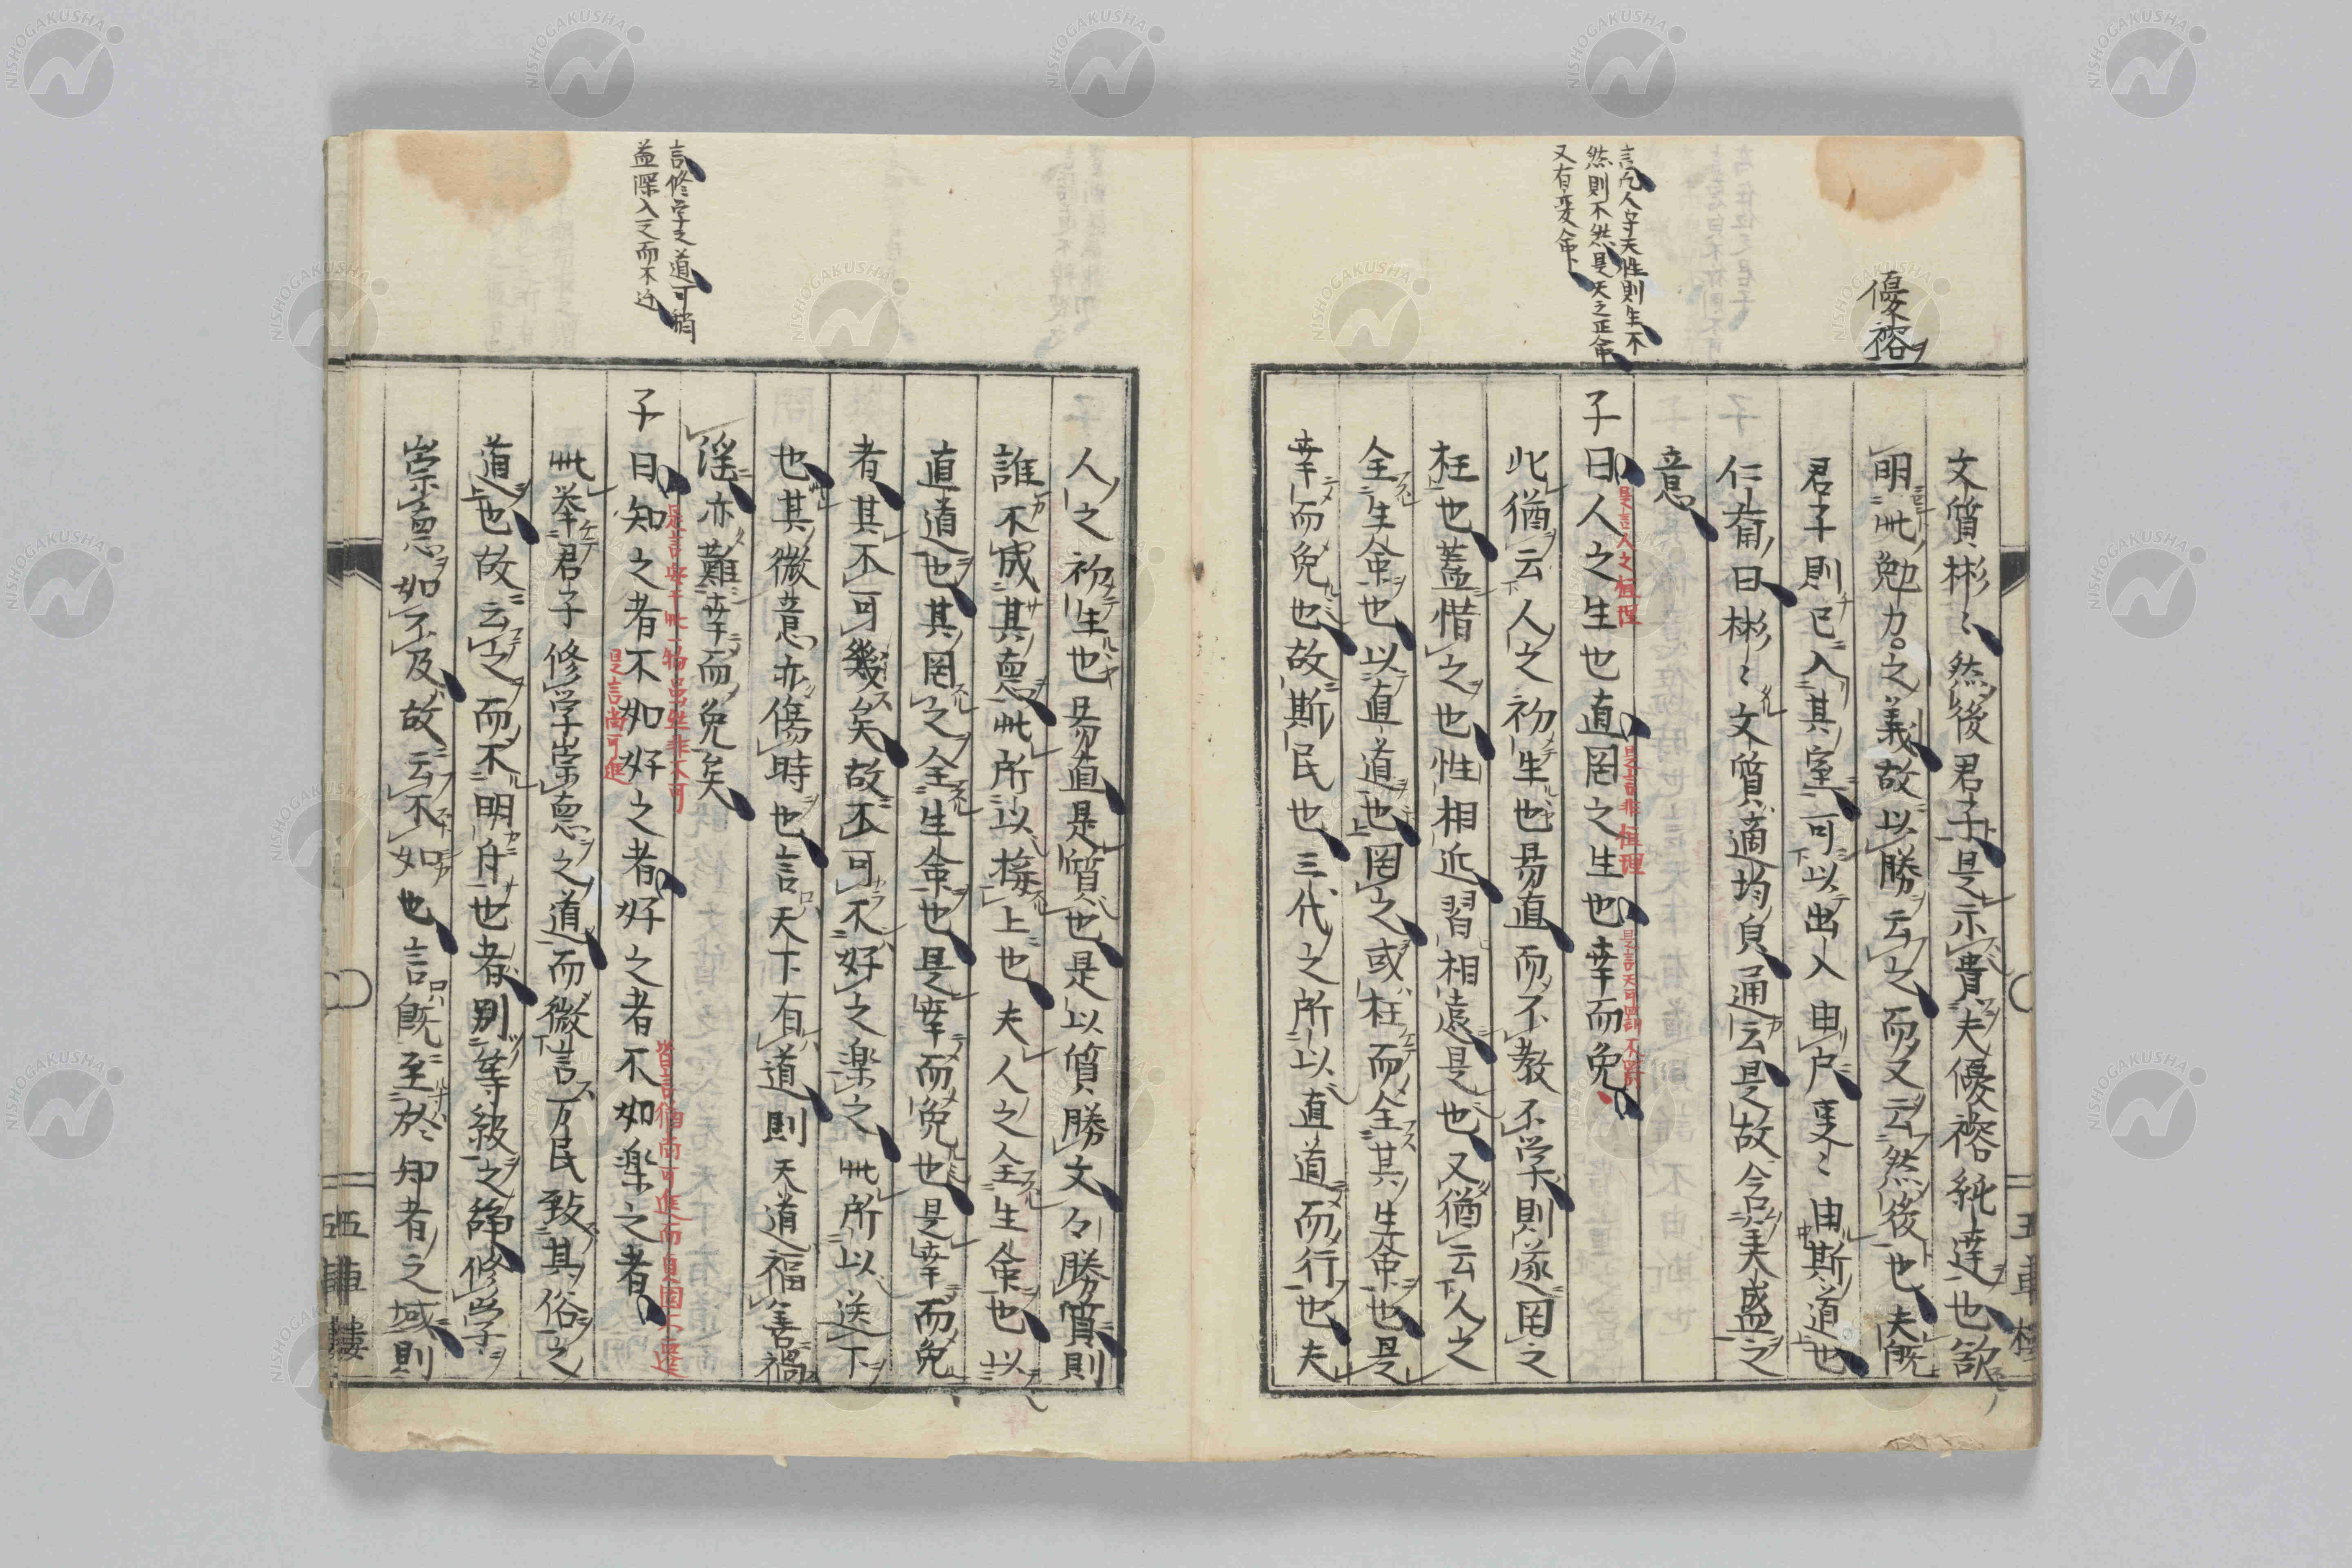 優裕
文質彬〻然後君子是示貴夫優裕純達也欲
明此勉力之義故以勝云之而又云然後也夫既
君子則已入其室可以出入由戸
由斯道也
仁甫曰彬〻文質適均皃通云是故含美盛之
意
言凡人守天性則生不
然則不然是天之正命
又有変命
子曰人之生也直罔之生也幸而免
是言人之恒理
是言非恒理
此猶云人之初生也易直而不教不学則遂罔之
枉也蓋惜之也性相近習相遠是也又猶云人之
全生命也以直道也罔之或枉而全其生命也是
幸而免也故斯民也三代之所以直道而行也夫
人之初生也易直是質也是以質勝文々勝質則
誰不成其悳此所以接上也夫人之全生命也以
直道也其罔之全生命也是幸而免也是幸而免
者其不可幾矣故不可不好之楽之此所以送下
也其微意亦傷時也言天下有道則天道福善禍
淫亦難幸而免矣
言修学之道可稍
益深入之而不
子曰知之者不如好之者好之者不如楽之者
是言尚可進
此挙君子修学崇悳之道而微言万民致其俗之
道也故云之而不明弁也者別等級之辞修学
崇悳如不及故云不如也言既至於知者之域則
五車楼